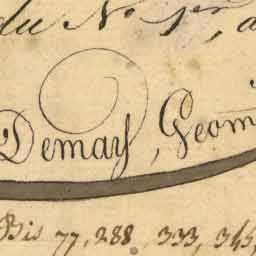 du N° 1er, a
Demay, Geom
Bis 77, 288, 333, 345,